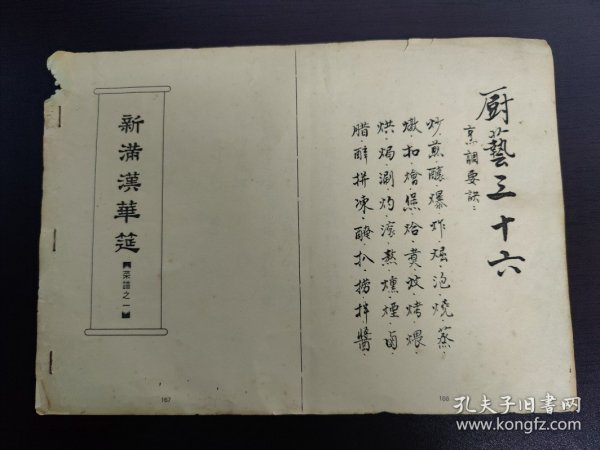 厨藝三十六
烹調要訣：
炒煎釀爆炸焗泡燒蒸
燉扣燴煲烩煑炆烤煨
烘焗涮灼滾熬燻煙鹵
腊醉拼凍醃扒撈拌醬
166
新滿漢華筵
菜譜之一
167
孔夫子旧书网
www.kongfz.com